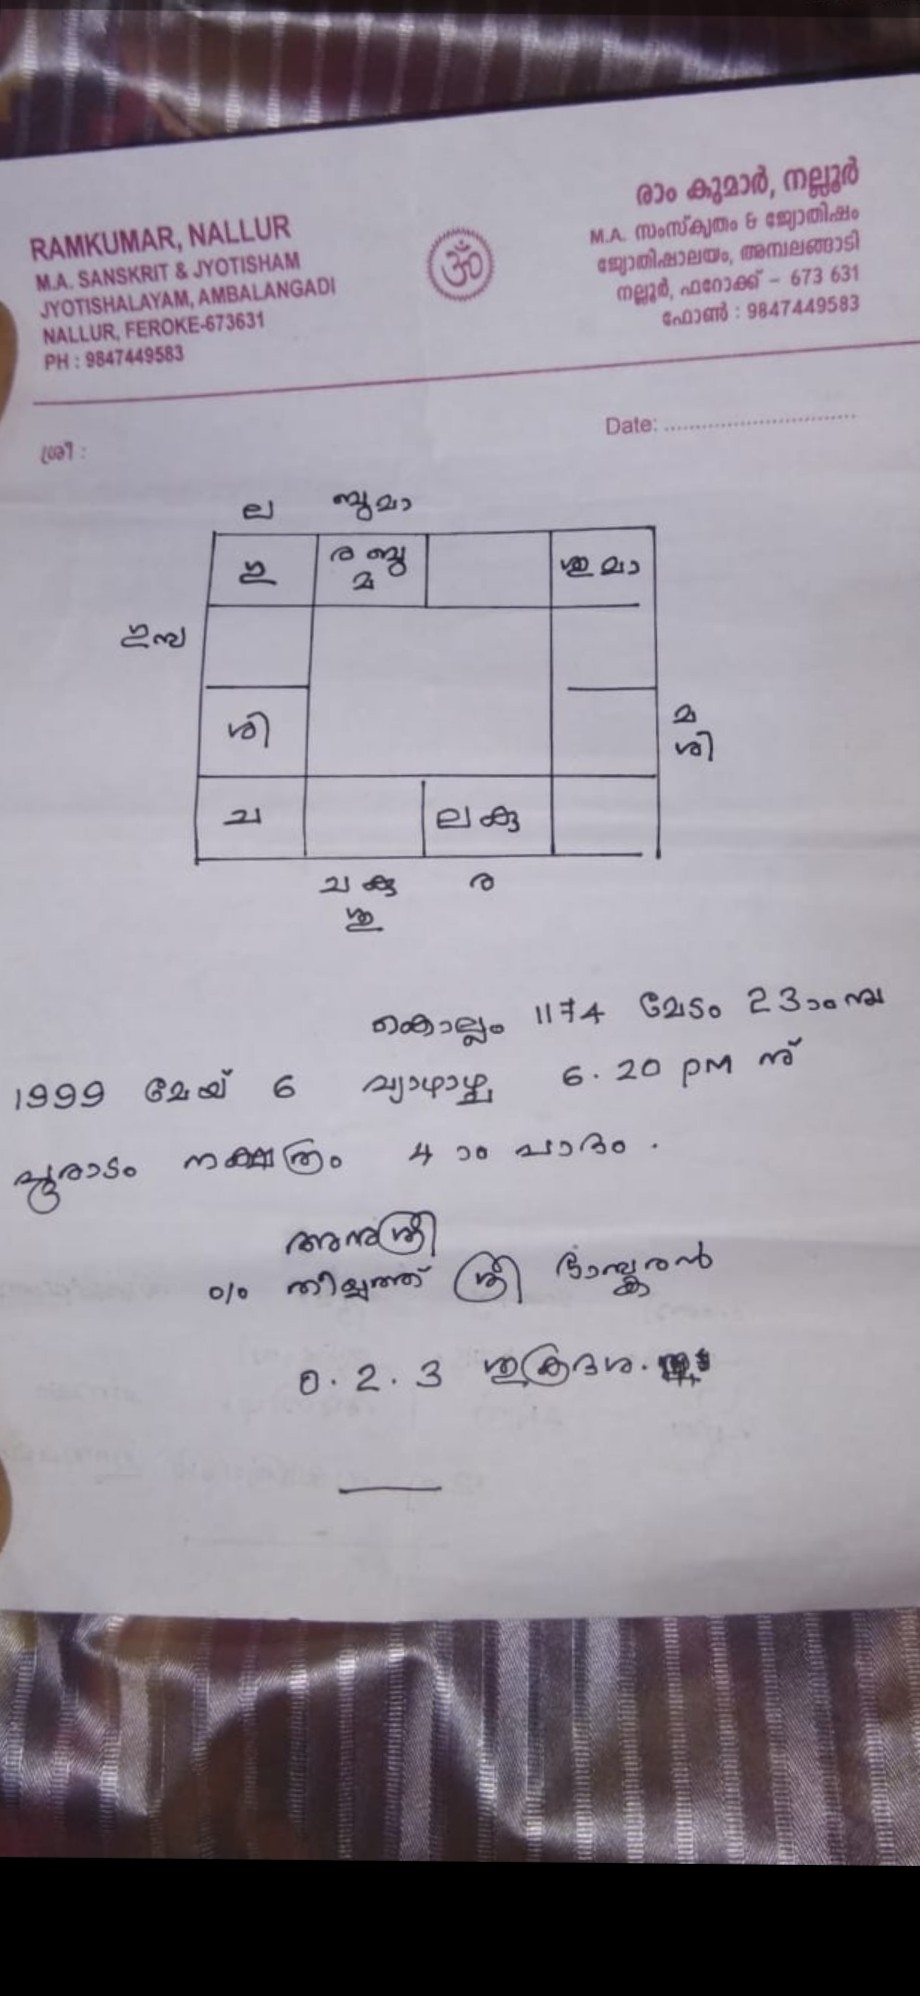 RAMKUMAR, NALLUR
M.A. SANSKRIT & JYOTISHAM
JYOTISHALAYAM, AMBALANGADI
NALLUR, FEROKE-673631
PH : 9847449583
ॐ
രാം കുമാർ, നല്ലൂർ
M.A. സംസ്കൃതം & ജ്യോതിഷം
ജ്യോതിഷാലയം, അമ്പലങ്ങാടി
നല്ലൂർ, ഫറോക്ക് – 673 631
ഫോൺ : 9847449583
Date: ..............................
ശ്രീ :
ല ബുമാ
ഗു ര ബു ശുമാ
മ
ഗു
മ
ശി ശി
ച ലകു
ച കു ര
ശു
കൊല്ലം 1174 മേടം 23ാം
1999 മേയ് 6 വ്യാഴാഴ്ച 6.20 PM ന്
പൂരാടം നക്ഷത്രം 4 ാം പാദം .
അനുശ്രീ
ശ്രീ ഭാസ്കരൻ
0.2.3 ശുക്രദശ.